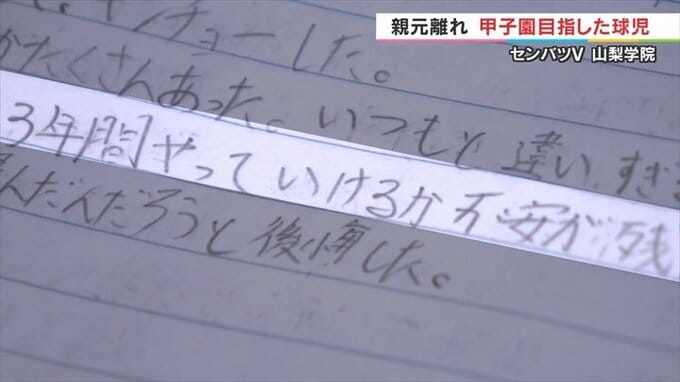 親元離れ 甲子園目指した球児
センバツV 山梨学院
チョーした。
がたくさんあった。いつもと違いすぎ
3年間やっていけるか不安が残
んだんだろうと後悔した。